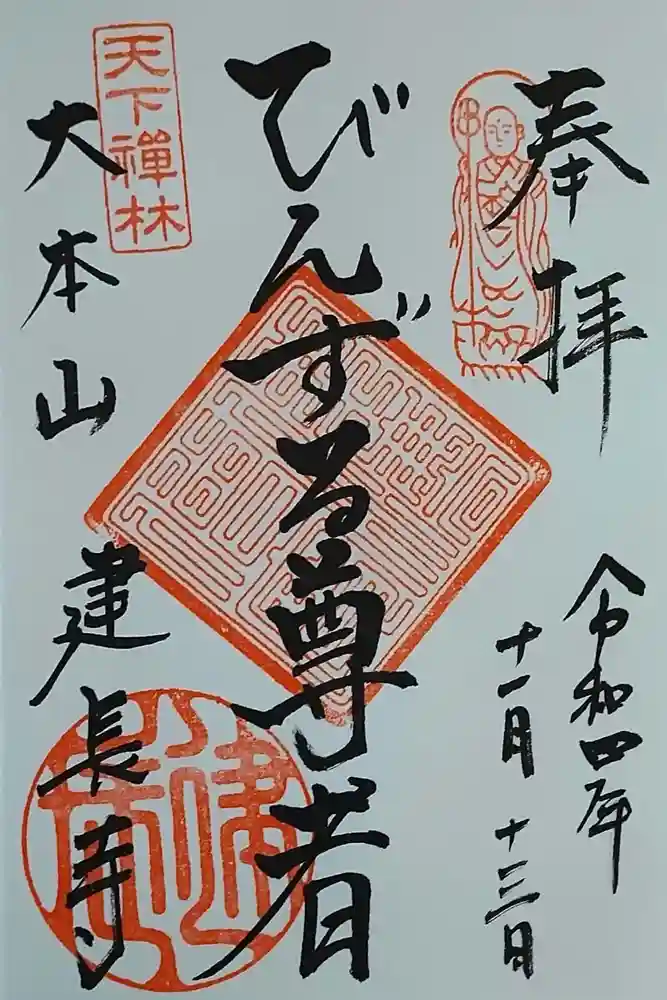 奉拝
令和四年
十一月十三日
びんずる尊者
天下禅林
大本山
建長寺